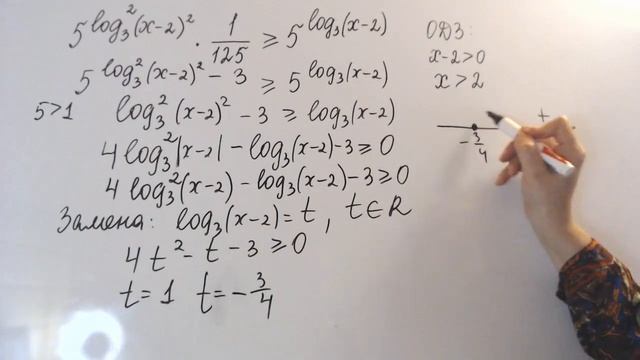 5^{log_3^2(x-2)^2} · \frac{1}{125} ≥ 5^{log_3(x-2)}
5^{log_3^2(x-2)^2 - 3} ≥ 5^{log_3(x-2)}
5>1 log_3^2(x-2)^2 - 3 ≥ log_3(x-2)
4log_3^2|x-2| - log_3(x-2)-3≥0
4log_3^2(x-2) - log_3(x-2)-3≥0
Замена: log_3(x-2)=t, t∈R
4t^2 - t - 3 ≥ 0
t=1 t=-\frac{3}{4}
ОДЗ:
x-2>0
x>2
+
-\frac{3}{4}